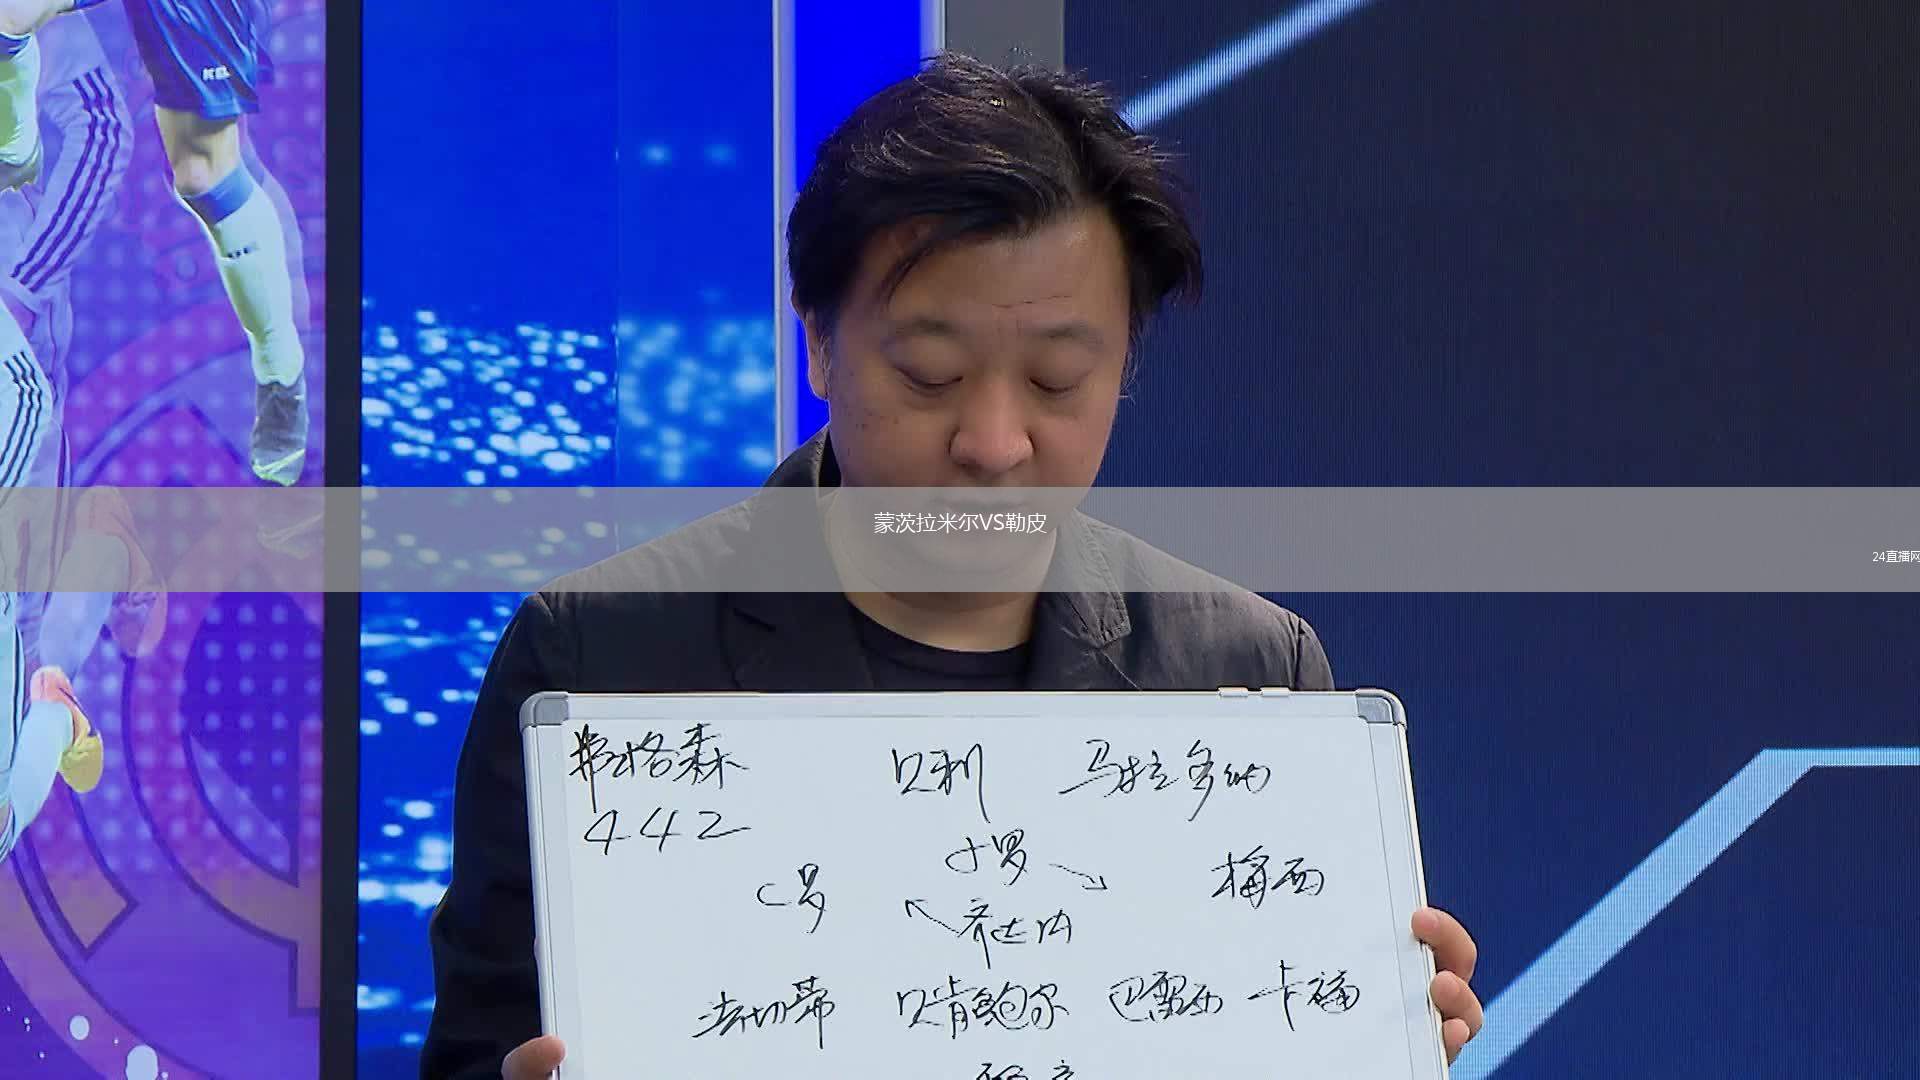 蒙茨拉米尔VS勒皮
24直播网
弗格森 贝利 马拉多纳
442
小罗
C罗 梅西
齐达内
法切蒂 贝肯鲍尔 巴雷西 卡福